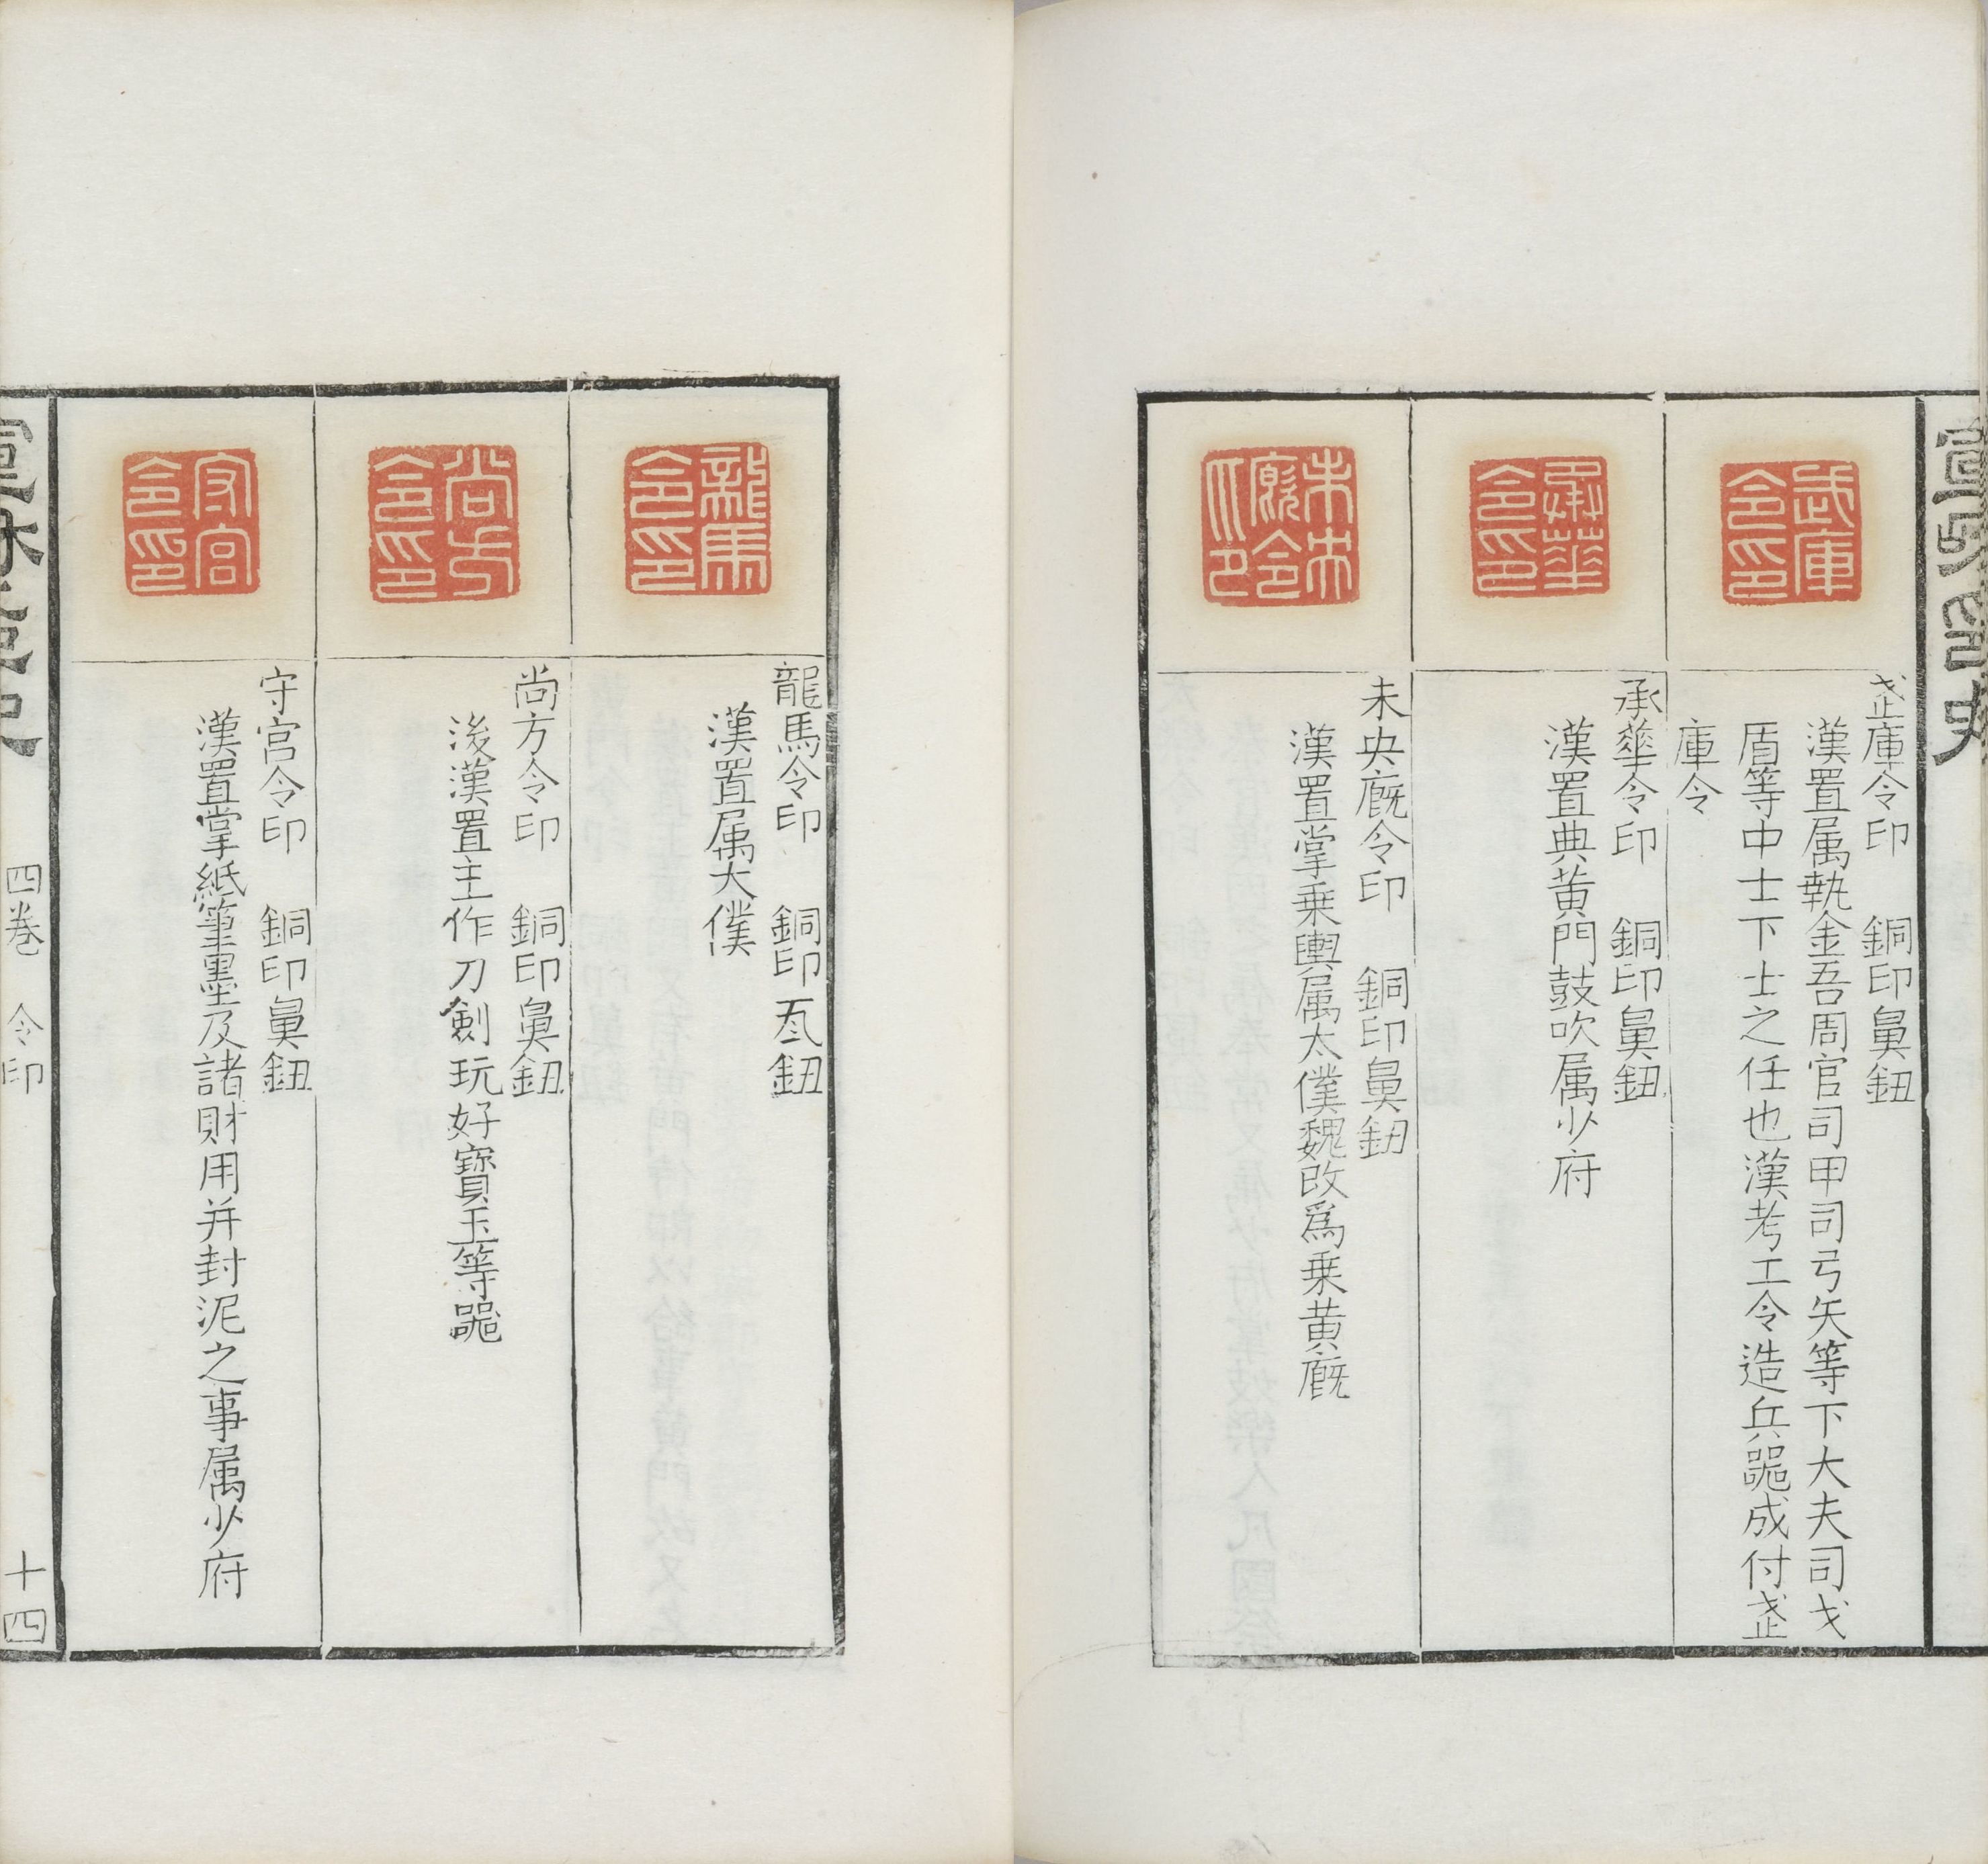 武庫令印
武庫令印　銅印鼻鈕
漢置属執金吾周官司甲司弓矢等下大夫司戈
盾等中士下士之任也漢考工令造兵器成付武
庫令
承華令印
承華令印　銅印鼻鈕
漢置典黄門鼓吹属少府
未央廄令印
未央廐令印　銅印鼻鈕
漢置掌乗輿属太僕魏改爲乗黄廐
龍馬令印
龍馬令印　銅印瓦鈕
漢置属大僕
尚方令印
尚方令印　銅印鼻鈕
後漢置主作刀劍玩好寶玉等器
守宮令印
守宫令印　銅印鼻鈕
漢置掌紙筆墨及諸財用并封泥之事属少府
四巻　令印
十四